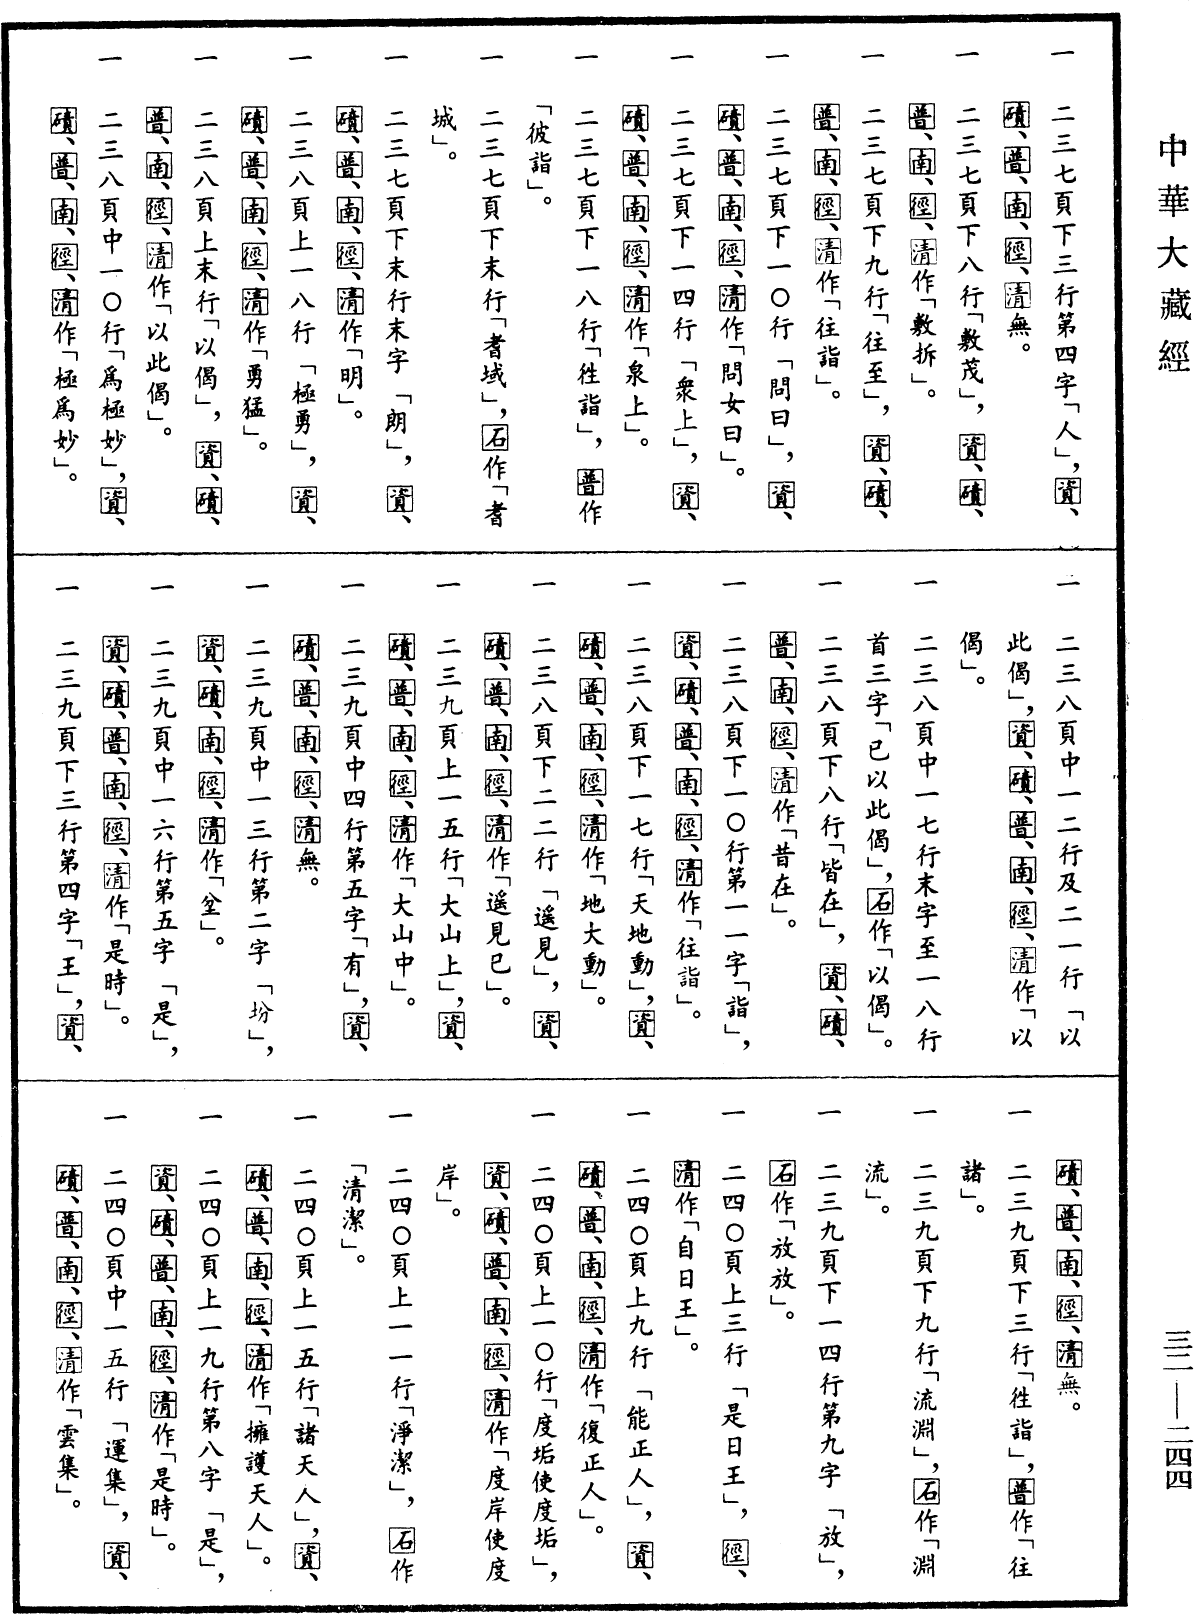 中華大藏經
一　二三七頁下三行第四字「人」，資、
磧、普、南、徑、清無。
一　二三七頁下八行「敷茂」，資、磧、
普、南、徑、清作「敷拆」。
一　二三七頁下九行「往至」，資、磧、
普、南、徑、清作「往詣」。
一　二三七頁下一〇行「問曰」，資、
磧、普、南、徑、清作「問女曰」。
一　二三七頁下一四行「衆上」，資、
磧、普、南、徑、清作「泉上」。
一　二三七頁下一八行「徃詣」，普作
「彼詣」。
一　二三七頁下末行「耆域」，石作「耆
城」。
一　二三七頁下末行末字「朗」，資、
磧、普、南、徑、清作「明」。
一　二三八頁上一八行「極勇」，資、
磧、普、南、徑、清作「勇猛」。
一　二三八頁上末行「以偈」，資、磧、
普、南、徑、清作「以此偈」。
一　二三八頁中一〇行「爲極妙」，資、
磧、普、南、徑、清作「極爲妙」。
一　二三八頁中一二行及二一行「以
此偈」，資、磧、普、南、徑、清作「以
偈」。
一　二三八頁中一七行末字至一八行
首三字「已以此偈」，石作「以偈」。
一　二三八頁下八行「皆在」，資、磧、
普、南、徑、清作「昔在」。
一　二三八頁下一〇行第一一字「詣」，
資、磧、普、南、徑、清作「往詣」。
一　二三八頁下一七行「天地動」，資、
磧、普、南、徑、清作「地大動」。
一　二三八頁下二二行「遥見」，資、
磧、普、南、徑、清作「遥見已」。
一　二三九頁上一五行「大山上」，資、
磧、普、南、徑、清作「大山中」。
一　二三九頁中四行第五字「有」，資、
磧、普、南、徑、清無。
一　二三九頁中一三行第二字「坋」，
資、磧、南、徑、清作「坌」。
一　二三九頁中一六行第五字「是」，
資、磧、普、南、徑、清作「是時」。
一　二三九頁下三行第四字「王」，資、
磧、普、南、徑、清無。
一　二三九頁下三行「徃詣」，普作「往
諸」。
一　二三九頁下九行「流淵」，石作「淵
流」。
一　二三九頁下一四行第九字「放」，
石作「放放」。
一　二四〇頁上三行「是日王」，徑、
清作「自日王」。
一　二四〇頁上九行「能正人」，資、
磧、普、南、徑、清作「復正人」。
一　二四〇頁上一〇行「度垢使度垢」，
資、磧、普、南、徑、清作「度岸使度
岸」。
一　二四〇頁上一一行「淨潔」，石作
「清潔」。
一　二四〇頁上一五行「諸天人」，資、
磧、普、南、徑、清作「擁護天人」。
一　二四〇頁上一九行第八字「是」，
資、磧、普、南、徑、清作「是時」。
一　二四〇頁中一五行「運集」，資、
磧、普、南、徑、清作「雲集」。
三二—二四四